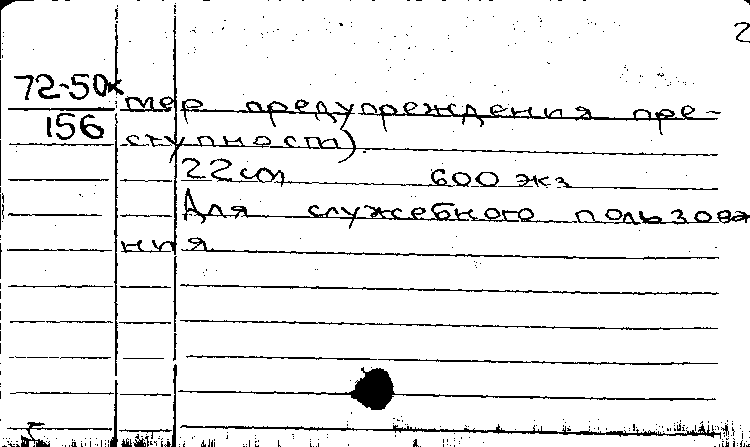 2
72-50к
156
мер предупреждения пре-
ступности).
22 см 600 экз
Для служебного пользова
ния